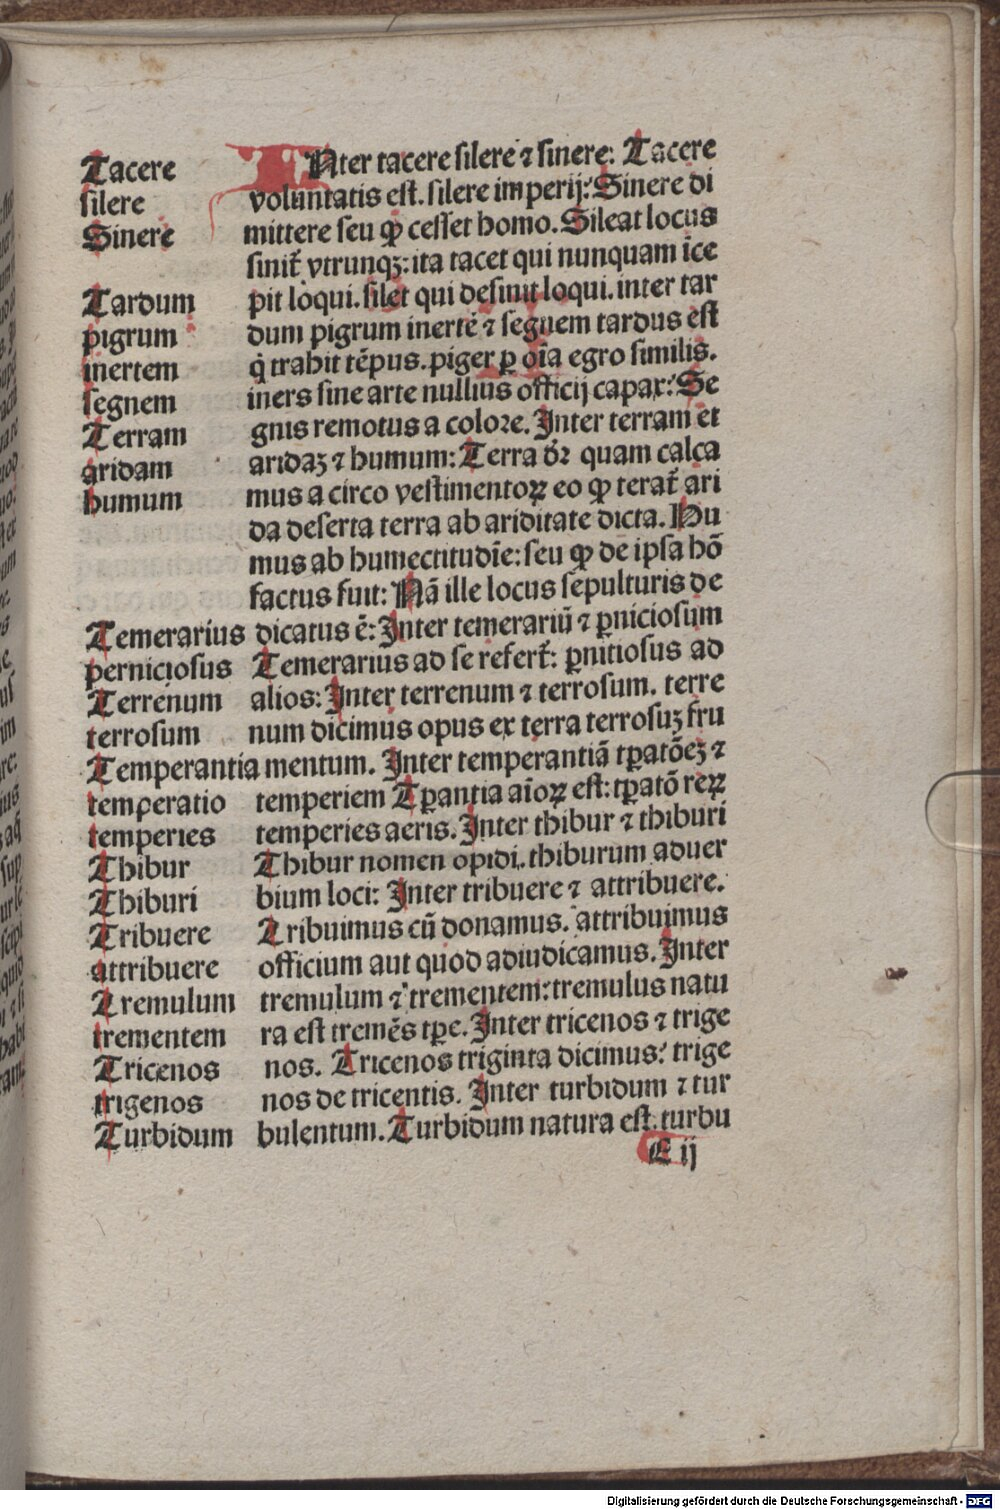 Tacere INter tacere silere ⁊ sinere: Tacere
silere voluntatis est. silere imperij: Sinere di
Sinere mittere seu ꝙ cesset homo. Sileat locus
sinit̃ vtrunqꝫ: ita tacet qui nunquam īce
Tardum pit loqui. silet qui desinit loqui. inter tar
pigrum dum pigrum inertē ⁊ segnem tardus est
inertem q̇ trahit tēpus. piger ꝑ oīa egro similis.
segnem iners sine arte nullius officij capax: Se
Terram gnis remotus a colore. Inter terram et
aridam aridaꝫ ⁊ humum: Terra dr̄ quam calca
humum mus a circo vestimentoꝝ eo ꝙ terat̃ ari
da deserta terra ab ariditate dicta. Hu
mus ab humectitudīe: seu ꝙ de ipsa hō
factus fuit: Nā ille locus sepulturis de
Temerarius dicatus ē: Inter temerariū ⁊ ꝑniciosum
perniciosus Temerarius ad se refert̃: ꝑnitiosus ad
Terrenum alios: Inter terrenum ⁊ terrosum. terre
terrosum num dicimus opus ex terra terrosuꝫ fru
Temperantia mentum. Inter temperantiā tꝑatōeꝫ ⁊
temperatio temperiem Tꝑantia aīoꝝ est: tꝑatō reꝝ
temperies temperies aeris. Inter thibur ⁊ thiburi
Thibur Thibur nomen opidi. thiburum aduer
Thiburi bium loci: Inter tribuere ⁊ attribuere.
Tribuere Tribuimus cū donamus. attribuimus
attribuere officium aut quod adiudicamus. Inter
Tremulum tremulum ⁊ trementem: tremulus natu
trementem ra est tremēs tꝑe. Inter tricenos ⁊ trige
Tricenos nos. Tricenos triginta dicimus: trige
trigenos nos de tricentis. Inter turbidum ⁊ tur
Turbidum bulentum. Turbidum natura est. turbu
E ij
Digitalisierung gefördert durch die Deutsche Forschungsgemeinschaft - DFG